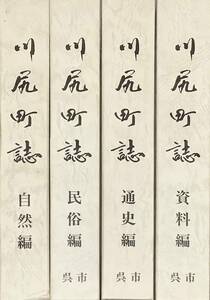 川尻町誌 自然編
川尻町誌 民俗編 呉市
川尻町誌 通史編 呉市
川尻町誌 資料編 呉市